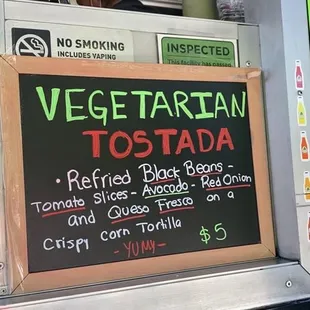 NO SMOKING
INCLUDES VAPING
INSPECTED
VEGETARIAN
TOSTADA
• Refried Black Beans -
Tomato Slices - Avocado - Red Onion
and Queso Fresco on a
Crispy corn Tortilla
- YUMY -
$5